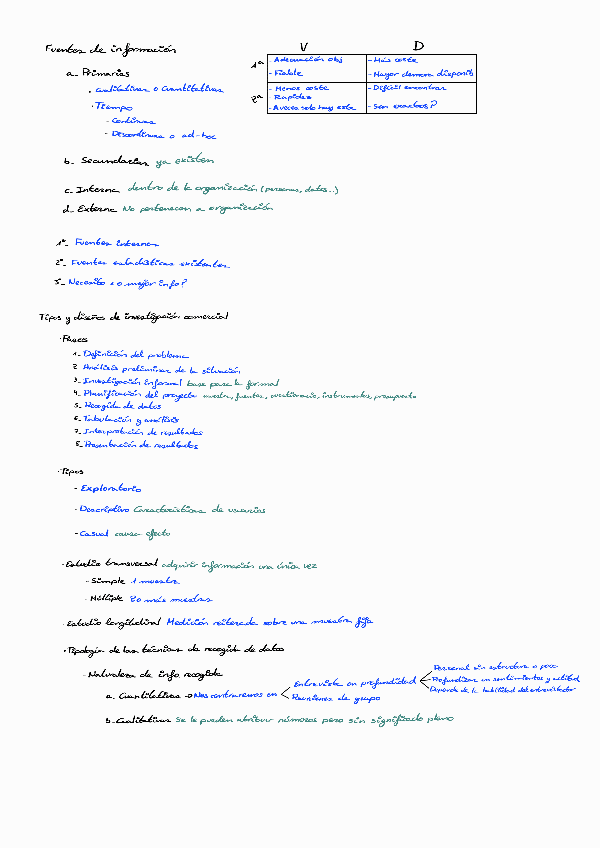 Fuentes de información
V D
1ª - Adecuación obj - Más coste
- Fiable - Mayor demora disponib
2ª - Menos coste - Difícil encontrar
Rapidez
- A veces solo hay este - Son exactos?
a_ Primarias
· cualitativas o cuantitativas
· Tiempo
- Continuas
- Discontinuas o ad-hoc
b_ Secundarias ya existen
c_ Interna dentro de la organización (personas, datos..)
d_ Externa No pertenecen a organización
1º_ Fuentes internas
2º_ Fuentes estadísticas existentes
3º_ Necesito + o mejor info?
Tipos y diseños de investigación comercial
· Fases
1_ Definición del problema
2 Análisis preliminar de la situación
3_ Investigación informal base para la formal
4_ Planificación del proyecto muestra, fuentes, cuestionario, instrumentos, presupuesto
5_ Recogida de datos
6_ Tabulación y análisis
7_ Interpretación de resultados
8_ Presentación de resultados
· Tipos
- Exploratorio
- Descriptivo Características de usuarios
- Casual causa efecto
· Estudio transversal adquirir información una única vez
- Simple 1 muestra
- Múltiple 2 o más muestras
· Estudio longitudinal Medición reiterada sobre una muestra fija
· Tipología de las técnicas de recogida de datos
- Naturaleza de info recogida
a. Cuantitativas → Nos centraremos en
Entrevista en profundidad
Reuniones de grupo
Personal sin estructura o poca
Profundizar en sentimientos y actitud
Depende de la habilidad del entrevistador
b. Cualitativas Se le pueden atribuir números pero sin significado pleno